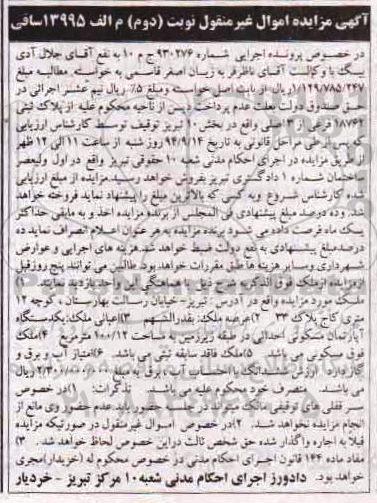 آگهی مزایده اموال غیرمنقول نوبت (دوم) م الف ۱۳۹۹۵ساقی
در خصوص پرونده اجرایی شماره ۹۳۰۲۷۶ج م ۱۰ به نفع آقای جلال آدی
بیگ با وکالت آقای ناظرفر به زیان اصغر قاسمی به خواسته. مطالبه مبلغ
۱/۱۲۹/۷۸۵/۲۴۷ریال از بابت اصل خواسته ومبلغ ۵٪ ریال نیم عشر اجرائی در
حق صندوق دولت بعلت عدم پرداخت دین از ناحیه محکوم علیه از پلاک ثبتی
۱۸۷۶۲ فرعی از ۳اصلی واقع در بخش ۱۰ تبریز توقیف توسط کارشناس ارزیابی
که پس از طی مراحل قانونی به تاریخ ۹۴/۹/۱۴ روز شنبه از ساعت ۱۱ الی ۱۲ ظهر
از طریق مزایده در اجرای احکام مدنی شعبه ۱۰ حقوقی تبریز واقع در اول ولیعصر
ساختمان شماره ۱ دادگستری تبریز بفروش خواهد رسید.مزایده از مبلغ ارزیابی
شده کارشناس شروع وبه کسی که بالاترین مبلغ را پیشنهاد نماید فروخته خواهد
شد. و ده درصد مبلغ پیشنهادی فی المجلس از برنده مزایده اخذ و به مابقی حداکثر
یک ماه فرصت داده می شود برنده مزایده به هر عنوان اعلام انصراف نماید ده
درصدمبلغ پیشنهادی به نفع دولت ضبط خواهد شد.هزینه های اجرایی و عوارض
شهرداری وسایر هزینه ها طبق مقررات خواهد بود.طالبین می توانند پنج روزقبل
ازمزایده ازملک فوق الذکربه شرح ذیل با هماهنگی این واحد بازدید نمایند. ۱)
ملک مورد مزایده واقع در آدرس: تبریز- خیابان رسالت بهارستان، کوچه ۱۲
متری کاج پلاک ۳۳ ۲)عرصه ملک: بقدرالسهم ۳)اعیانی ملک:یکدستگاه
آپارتمان مسکونی احداثی در طبقه زیرزمین به مساحت ۱۰۰/۱۲ مترمربع ۴)ملک
فوق مسکونی می باشد. ۵)ملک فاقد سابقه ثبتی می باشد. ۶)امتیاز آب و برق و
گازدارد. ارزش ششدانگ با احتساب آب ، برق به مبلغ ریال
می باشند. متصرف خود محکوم علیه می باشد. تذکرات: ۱)در خصوص
سر قفلی های توقیفی مالک میتواند در جلسه حضور یابد عدم حضور وی مانع از
انجام مزایده نخواهد شد. ۲)در خصوص اموال غیرمنقول در صورتیکه مزایده
قبلا به اجاره واگذار شده حق شخص ثالث دراین خصوص لحاظ خواهد شد. ۳)
مفاد ماده ۱۴۴ قانون اجرای احکام مدنی در خصوص محکوم له (خریدار)مجری
خواهد بود. دادورز اجرای احکام مدنی شعبه ۱۰ مرکز تبریز - خردیار